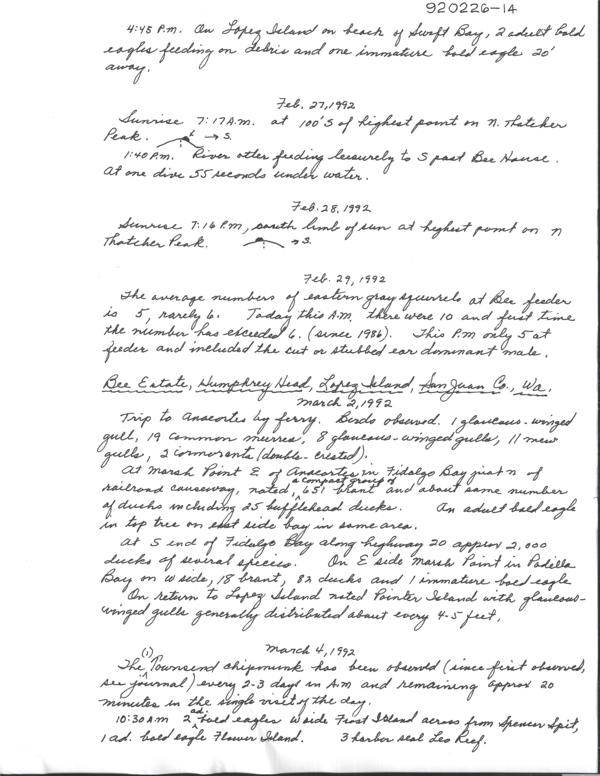 920226-14
4:45 P.M. On Lopez Island on beach of Swift Bay, 2 adult bald
eagles feeding on debris and one immature bald eagle 20'
away.
Feb. 27, 1992
Sunrise 7:17 A.M. at 100'S of highest point on N. Thatcher
Peak. → S.
1:40 P.M. River otter feeding leisurely to S past Bee House.
At one dive 55 seconds under water.
Feb. 28, 1992
Sunrise 7:16 P.M., south limb of sun at highest point on N
Thatcher Peak. → S.
Feb. 29, 1992
The average numbers of eastern gray squirrels at Bee feeder
is 5, rarely 6. Today this A.M. there were 10 and first time
the number has exceeded 6. (since 1986). This P.M only 5 at
feeder and included the cut or stubbed ear dominant male.
Bee Estate, Humphrey Head, Lopez Island, San Juan Co., Wa.
March 2, 1992
Trip to Anacortes by ferry. Birds observed. 1 glaucous-winged
gull, 19 common murres, 8 glaucous-winged gulls, 11 mew
gulls, 2 cormorants (double-crested).
At Marsh Point E of Anacortes in Fidalgo Bay just N of
railroad causeway, noted, a compact group of 651 brant and about same number
of ducks including 25 bufflehead ducks. An adult bald eagle
in top tree on east side bay in same area.
At S end of Fidalgo Bay along highway 20 approx 2,000
ducks of several species. On E side Marsh Point in Padilla
Bay on W side, 18 brant, 82 ducks and 1 immature bald eagle
On return to Lopez Island noted Pointer Island with glaucous-
winged gulls generally distributed about every 4-5 feet.
March 4, 1992
The (1) Townsend chipmunk has been observed (since first observed,
see journal) every 2-3 days in A.M and remaining approx 20
minutes in the single visit of the day.
10:30 A.M 2 ad. bald eagles W side Frost Island across from Spencer Spit,
1 ad. bald eagle Flower Island. 3 harbor seal Leo Reef.